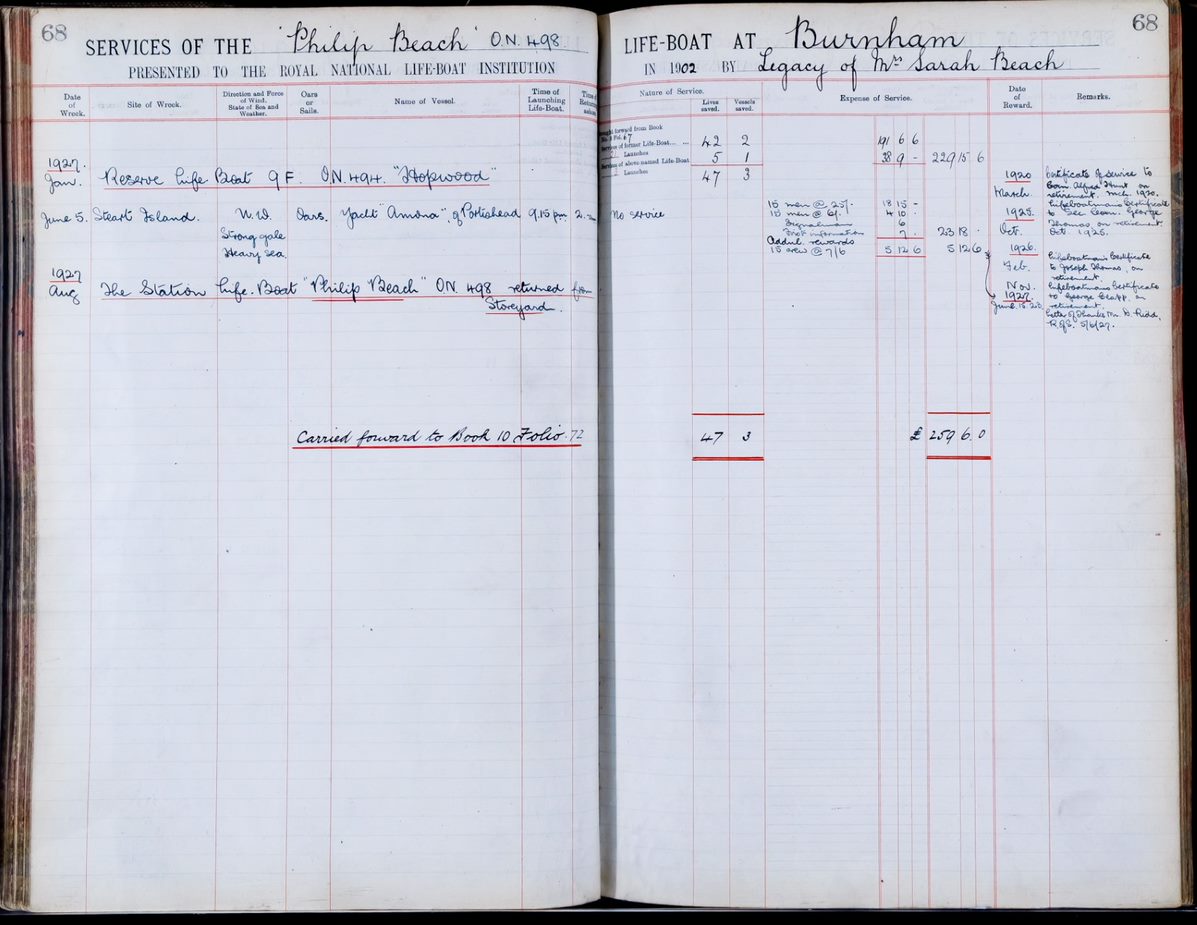 68
SERVICES OF THE "Philip Beach" O.N. 498.
PRESENTED TO THE ROYAL NATIONAL LIFE-BOAT INSTITUTION
Date of Wreck.
Site of Wreck.
Direction and Force of Wind. State of Sea and Weather.
Oars or Sails.
Name of Vessel.
Time of Launching Life-Boat.
Time of
1927.
Jan. Reserve Life Boat 9 F. O.N. 494. "Hopwood"
June 5. Steart Island. N.W. Oars. Yacht "Amona", of Portishead 9.15 pm.
Strong gale
Heavy Sea
1927
Aug The Station Life-Boat "Philip Beach" ON 498 returned from
Storeyard.
Carried forward to Book 10 Folio 72
68
LIFE-BOAT AT Burnham
IN 1902 BY Legacy of Mrs Sarah Beach
Nature of Service.
Lives saved.
Vessels saved.
Expense of Service.
Date of Reward.
Remarks.
forward from Book
Fol. 67
of former Life-Boat 42 2 191 6 6
Launches
of above named Life-Boat 5 1 38 9 - 229 15 6
Launches 47 3
No service
15 men @ 25/- 18 15 -
15 men @ 6/- 4 10 -
Signalman 6
First information 7 - 23 18 -
Addnl. rewards
15 crew @ 7/6 5 12 6 5 12 6
1920 March. Certificate of Service to
Alfred Hunt on
retirement. Mch. 1920.
1925. Oct. Lifeboatman's Certificate
to Sec Coxn. George
Thomas, on retirement.
Oct. 1925.
1926. Feb. Lifeboatman's Certificate
to Joseph Thomas, on
retirement.
Nov. Lifeboatman's Certificate
to George on
retirement.
1927. June Letter of Thanks Mr. D. Kidd,
5/6/27.
47 3 £ 259 6. 0